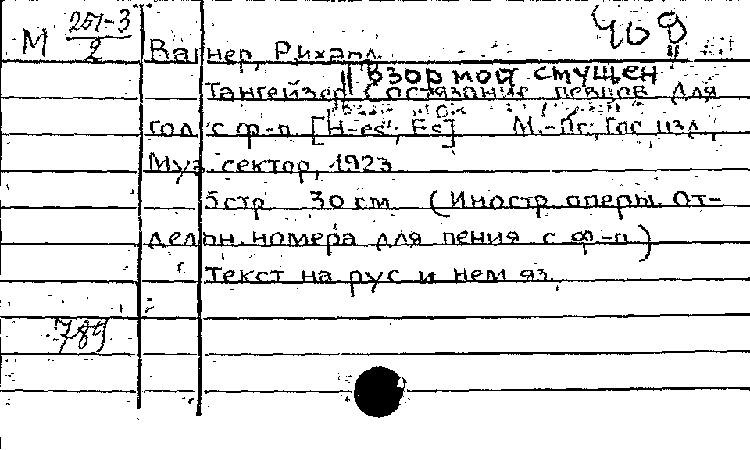 М 251-3
2
409
Вагнер, Рихард
"Взор мой смущен"
Тангейзер Состязание певцов Для
гол с ф-п. [H-es'; Es] М.-Пг; Гос изд,
Муз. сектор, 1923
5 стр 30 см (Иностр. оперы. От-
дельн. номера для пения с ф-п)
Текст на рус и нем яз.
789